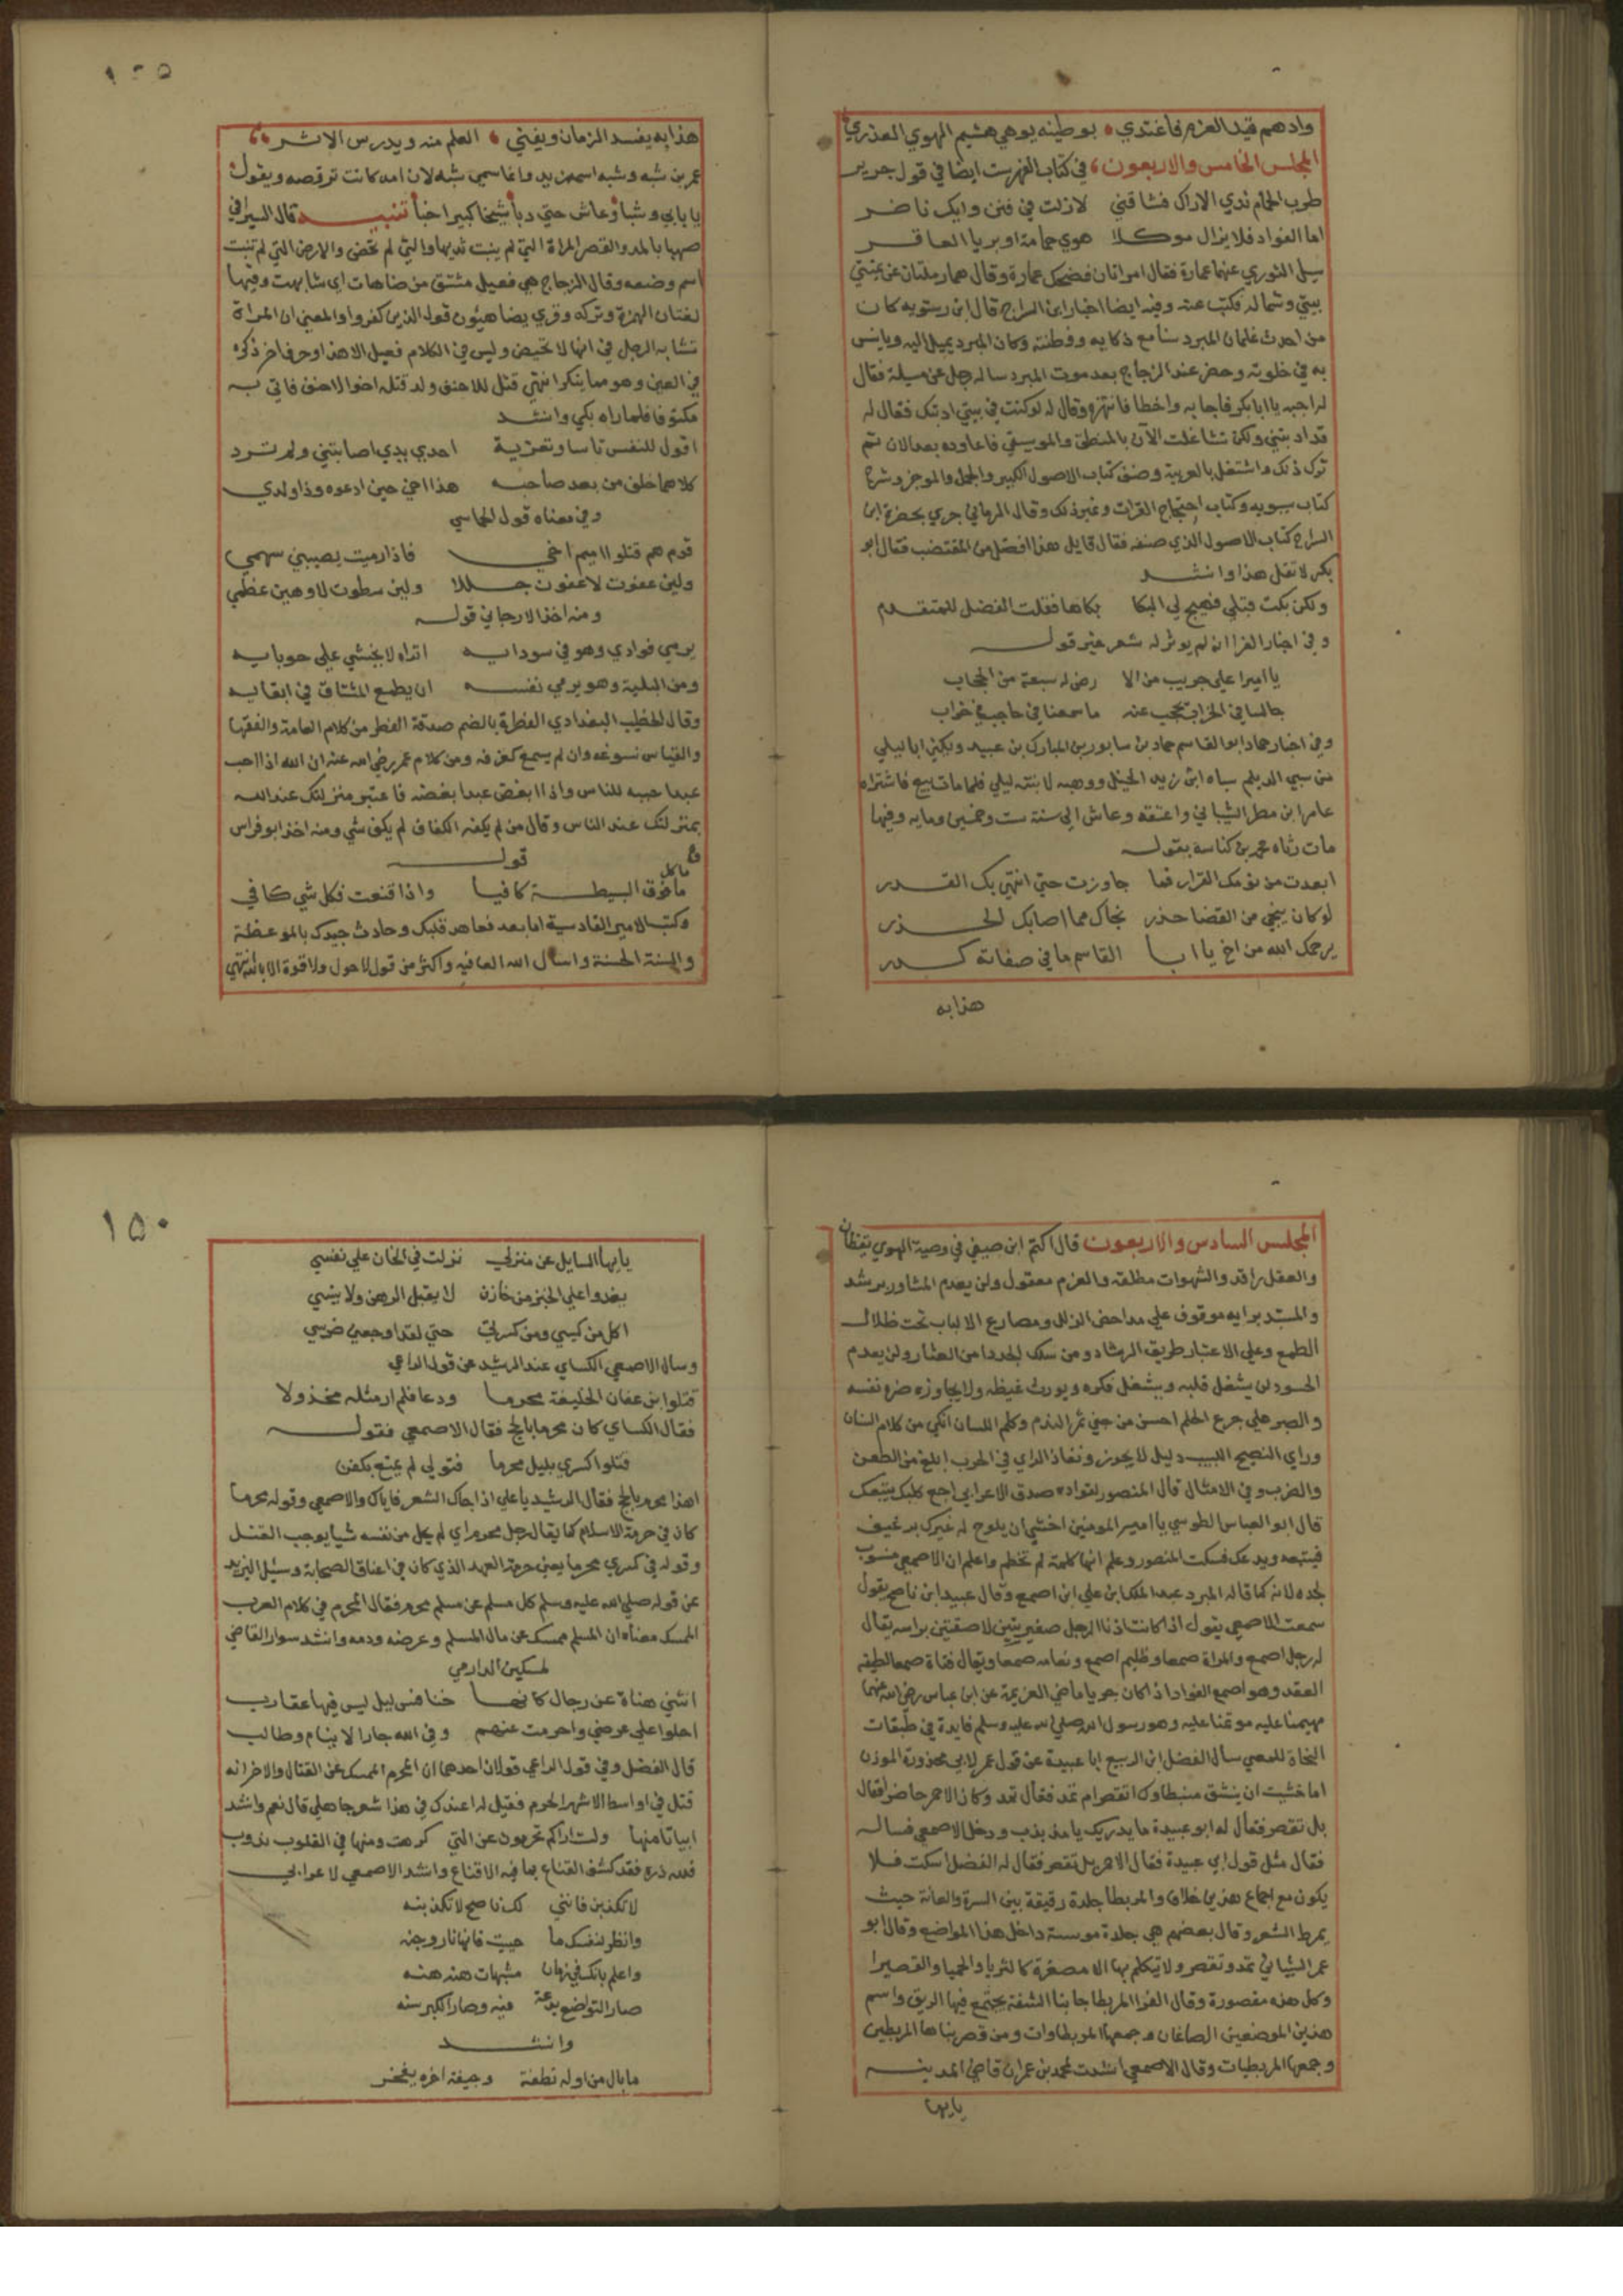 وادهم قيد العزم فاغتدي بوطينه يوهي هشيم الهوي العذري
المجلس الخامس والاربعون في كتاب الفهرست ايضا في قول جرير
طرب الحمام بذي الاراك فشاقني لازلت في فنن وايك ناضر
اما الفواد فلا يزال موكلا بهوي حمامة او بريا العاقر
سيل الثوري عنهما عمارة فقال امراتان فضحك عمارة وقال هما رملتان عن يميني
بيتي وشماله فكتب عنه وفيه ايضا اخبار ابن السراج قال ابن رستويه كان
من احدث غلمان المبرد سنا مع ذكايه وفطنته وكان المبرد يميل اليه ويانس
به في خلوته وحضر عند الزجاج بعد موت المبرد ساله رجل عن مسيلة فقال
له اجبه يا ابا بكر فاجابه واخطا فانتهره وقال له لو كنت في بيتي ادبتك فقال له
قد ادبتني ولكن تشاغلت الآن بالمنطق والموسيقي فاعاوده بعد الان ثم
ترك ذلك واشتغل بالعربية وصنف كتاب الاصول الكبير والجمل والموجز وشرح
كتاب سيبويه وكتاب احتجاج القرات وغير ذلك وقال الرماني جري بحضرة ابن
السراج كتاب الاصول الذي صنفه فقال قايل هذا افضل من المقتضب فقال ابو
بكر لا تقل هذا وانشد
ولكن بكت قبلي فهيج لي البكا بكاها فقلت الفضل للمتقدم
وفي اخبار الفرا انه لم يوثر له شعر غير قوله
يا اميرا علي جريب من الا رض له سبعة من الحجاب
جالسا في الخراب يحجب عنه ما سمعنا في حاجب في خراب
وفي اخبار حماد ابو القاسم حماد بن سابور بن المبارك بن عبيد ويكني ابا ليلي
من سبي الديلم سباه ابن زيد الخيل ووهبه لابنته ليلي فلما مات بيع فاشتراه
عامر ابن مطر الشيباني واعتقه وعاش الي سنة ست وخمسين ومايه وفيها
مات رثاه محمد بن كناسة بقوله
ابعدت من نومك القرار فما جاوزت حتي انتهي بك القدر
لو كان ينجي من القضا حذر نجاك مما اصابك الحذر
يرحمك الله من اخ يا ابا القاسم ما في صفاته كدر
هذا به
١٤٥
هذا به يفسد الزمان ويفني العلم منه ويدرس الاثر
عمر بن شبه وشبه اسمه زيد وانما سمي شبه لان امه كانت ترقصه ويقول
يا بابي وشبا وعاش حتي دبا شيخا كبيرا خبا تنبيه قال السيرافي
ضهيا بالمد والقصر المراة التي لم ينبت ثديها والتي لم تحض والارض التي لم تنبت
اسم وضعه وقال الزجاج هي فعيل مشتق من ضاهات اي شابهت وفيها
لغتان الهمزة وتركه وقري يضاهيون قول الذين كفروا والمعني ان المراة
تشابه الرجل في انها لا تحيض وليس في الكلام فعيل الا هذا وحرفا اخر ذكره
في العين وهو مما ينكر انتهي قتل للاحنف ولد قتله اخو الاحنف فاتي به
مكتوفا فلما راه بكي وانشد
اقول للنفس تاسا وتعزية احدي يدي اصابتني ولم ترد
كلاهما خلف من بعد صاحبه هذا اخي حين ادعوه وذا ولدي
وفي معناه قول الحماسي
قوم هم قتلوا اميم اخي فاذا رميت يصيبني سهمي
ولين عفوت لاعفون جللا ولين سطوت لاوهين عظمي
ومنه اخذ الارجاني قوله
يرمي فوادي وهو في سودايه اتراه لا يخشي علي حوبايه
ومن البلية وهو يرمي نفسه ان يطمع المشتاق في ابقايه
وقال الخطيب البغدادي الفطرة بالضم صدقة الفطر من كلام العامة والفقها
والقياس نسوغه وان لم يسمع كغرفه ومن كلام عمر رضي الله عنه ان الله اذا احب
عبدا حببه للناس واذا ابغض عبدا بغضه فاعتبر منزلتك عند الله
بمنزلتك عند الناس وقال من لم يكفه الكفاف لم يكفه شي ومنه اخذ ابو فراس
قوله
ما كل
ما فوق البسيطة كافيا واذا قنعت فكل شي كافي
وكتب لامير القادسية اما بعد فعاهد قلبك وحادث جندك بالموعظة
والسنة الحسنة واسال الله العافيه واكثر من قول لا حول ولا قوة الا بالله انتهي
المجلس السادس والاربعون قال اكثم ابن صيفي في وصية الهوي يقظان
والعقل راقد والشهوات مطلقه والعزم معقول ولن يعدم المشاور مرشد
والمستبد برايه موقوف علي مداحض الزلل ومصارع الالباب تحت ظلال
الطمع وعلي الاعتبار طريق الرشاد ومن سلك الجدد امن العثار ولن يعدم
الحسود ان يشغل قلبه ويشغل فكره ويورث غيظه ولا يجاوز ضره نفسه
والصبر علي جرع الحلم احسن من جني ثمر الندم وكلم اللسان انكي من كلام السنان
وراي النصيح اللبيب دليل لا يجوز ونفاذ الراي في الحرب ابلغ من الطعن
والضرب وفي الامثال قال المنصور لقواده صدق الاعرابي اجع كلبك يتبعك
قال ابو العباس الطوسي يا امير المومنين اخشي ان يلوح له غيرك برغيف
فيتبعه ويدعك فسكت المنصور وعلم انها كلمة لم تخطم واعلم ان الاصمعي منسوب
لجده لانه كما قاله المبرد عبد الملك ابن علي ابن اصمع وقال عبيد ابن ناصح يقول
سمعت الاصمعي يقول اذا كانت اذنا الرجل صغيرتين لاصقتين براسه يقال
له رجل اصمع والمراة صمعا وظليم اصمع ونعامه صمعا ويقال قناة صمعا لطيفه
العقد وهو اصمع الفواد اذا كان جريا ماضي العزيمة عن ابن عباس رضي الله عنهما
مهيمنا عليه موتمنا عليه وهو رسول الله صلي الله عليه وسلم فايدة في طبقات
النحاة للمعصي سال الفضل ابن الربيع ابا عبيدة عن قول عمر لابي محذورة الموذن
اما خشيت ان ينشق مريطاوك اتقصر ام تمد فقال تمد وكان الاحمر حاضرا فقال
بل تقصر فقال له ابو عبيدة ما يدريك يا مذبذب ودخل الاصمعي فساله
فقال مثل قول ابي عبيدة فقال الاحمر بل تقصر فقال له الفضل اسكت فلا
يكون مع اجماع هذين خلاف والمريطا جلدة رقيقة بين السرة والعانة حيث
يمرط الشعر وقال بعضهم هي جلدة داخل هذا المواضع وقال ابو
عمر الشيباني تمد وتقصر ولا يتكلم بها الا مصغرة كالثريا والحميا والقصيرا
وكل هذه مقصورة وقال الفرا المريطا جانبا الشفة يجتمع فيها الريق واسم
هذين الموضعين الصامغان وجمعها المريطاوات ومن قصر بناها المريطين
وجمعها المريطيات وقال الاصمعي انشدت لمحمد بن عمران قاضي المدينه
يا ايها
١٥٠
يا ايها السايل عن منزلي نزلت في الخان علي نفسي
يغدوا علي الخبز من خازن لا يقبل الرهن ولا ينسي
اكل من كيسي ومن كسرتي حتي لقد اوجعني ضرسي
وسال الاصمعي الكساي عند الرشيد عن قول الراعي
قتلوا ابن عفان الخليفة محرما ودعا فلم ار مثله مخذولا
فقال الكساي كان محرما بالحج فقال الاصمعي فقوله
قتلوا كسري بليل محرما فتولي لم يمتع بكفن
اهذا محرم بالحج فقال الرشيد يا علي اذا جاك الشعر فاياك والاصمعي وقوله محرما
كان في حرمة الاسلام كما يقال رجل محرم اي لم يحل من نفسه شيا يوجب القتل
وقوله في كسري محرما يعني حرمة العهد الذي كان في اعناق اصحابه وسيل اليزيد
عن قوله صلي الله عليه وسلم كل مسلم عن مسلم محرم فقال المحرم في كلام العرب
الممسك معناه ان المسلم ممسك عن مال المسلم وعرضه ودمه وانشد سوار القاضي
لمسكين الدارمي
اتتني هناة عن رجال كانها خنافس ليل ليس فيها عقارب
احلوا علي عرضي واحرمت عنهم وفي الله جار لا ينام وطالب
قال الفضل وفي قول الراعي قولان احدهما ان المحرم الممسك عن القتال والاخر انه
قتل في اواسط الاشهر الحرم فقيل له اعندك في هذا شعر جاهلي قال نعم وانشد
ابياتا منها ولست اراكم تحرمون عن التي كرهت ومنها في القلوب ندوب
فلله دره فقد كشف القناع بما فيه الاقناع وانشد الاصمعي لاعرابي
لا تكذبن فانني لك ناصح لا تكذبنه
وانظر لنفسك ما حييت فانها نار وجنه
واعلم بانك في زمان مشبهات هنه هنه
صار التواضع بدعة فيه وصار الكبر سنه
وانشد
ما بال من اوله نطفة وجيفة اخره يفخر